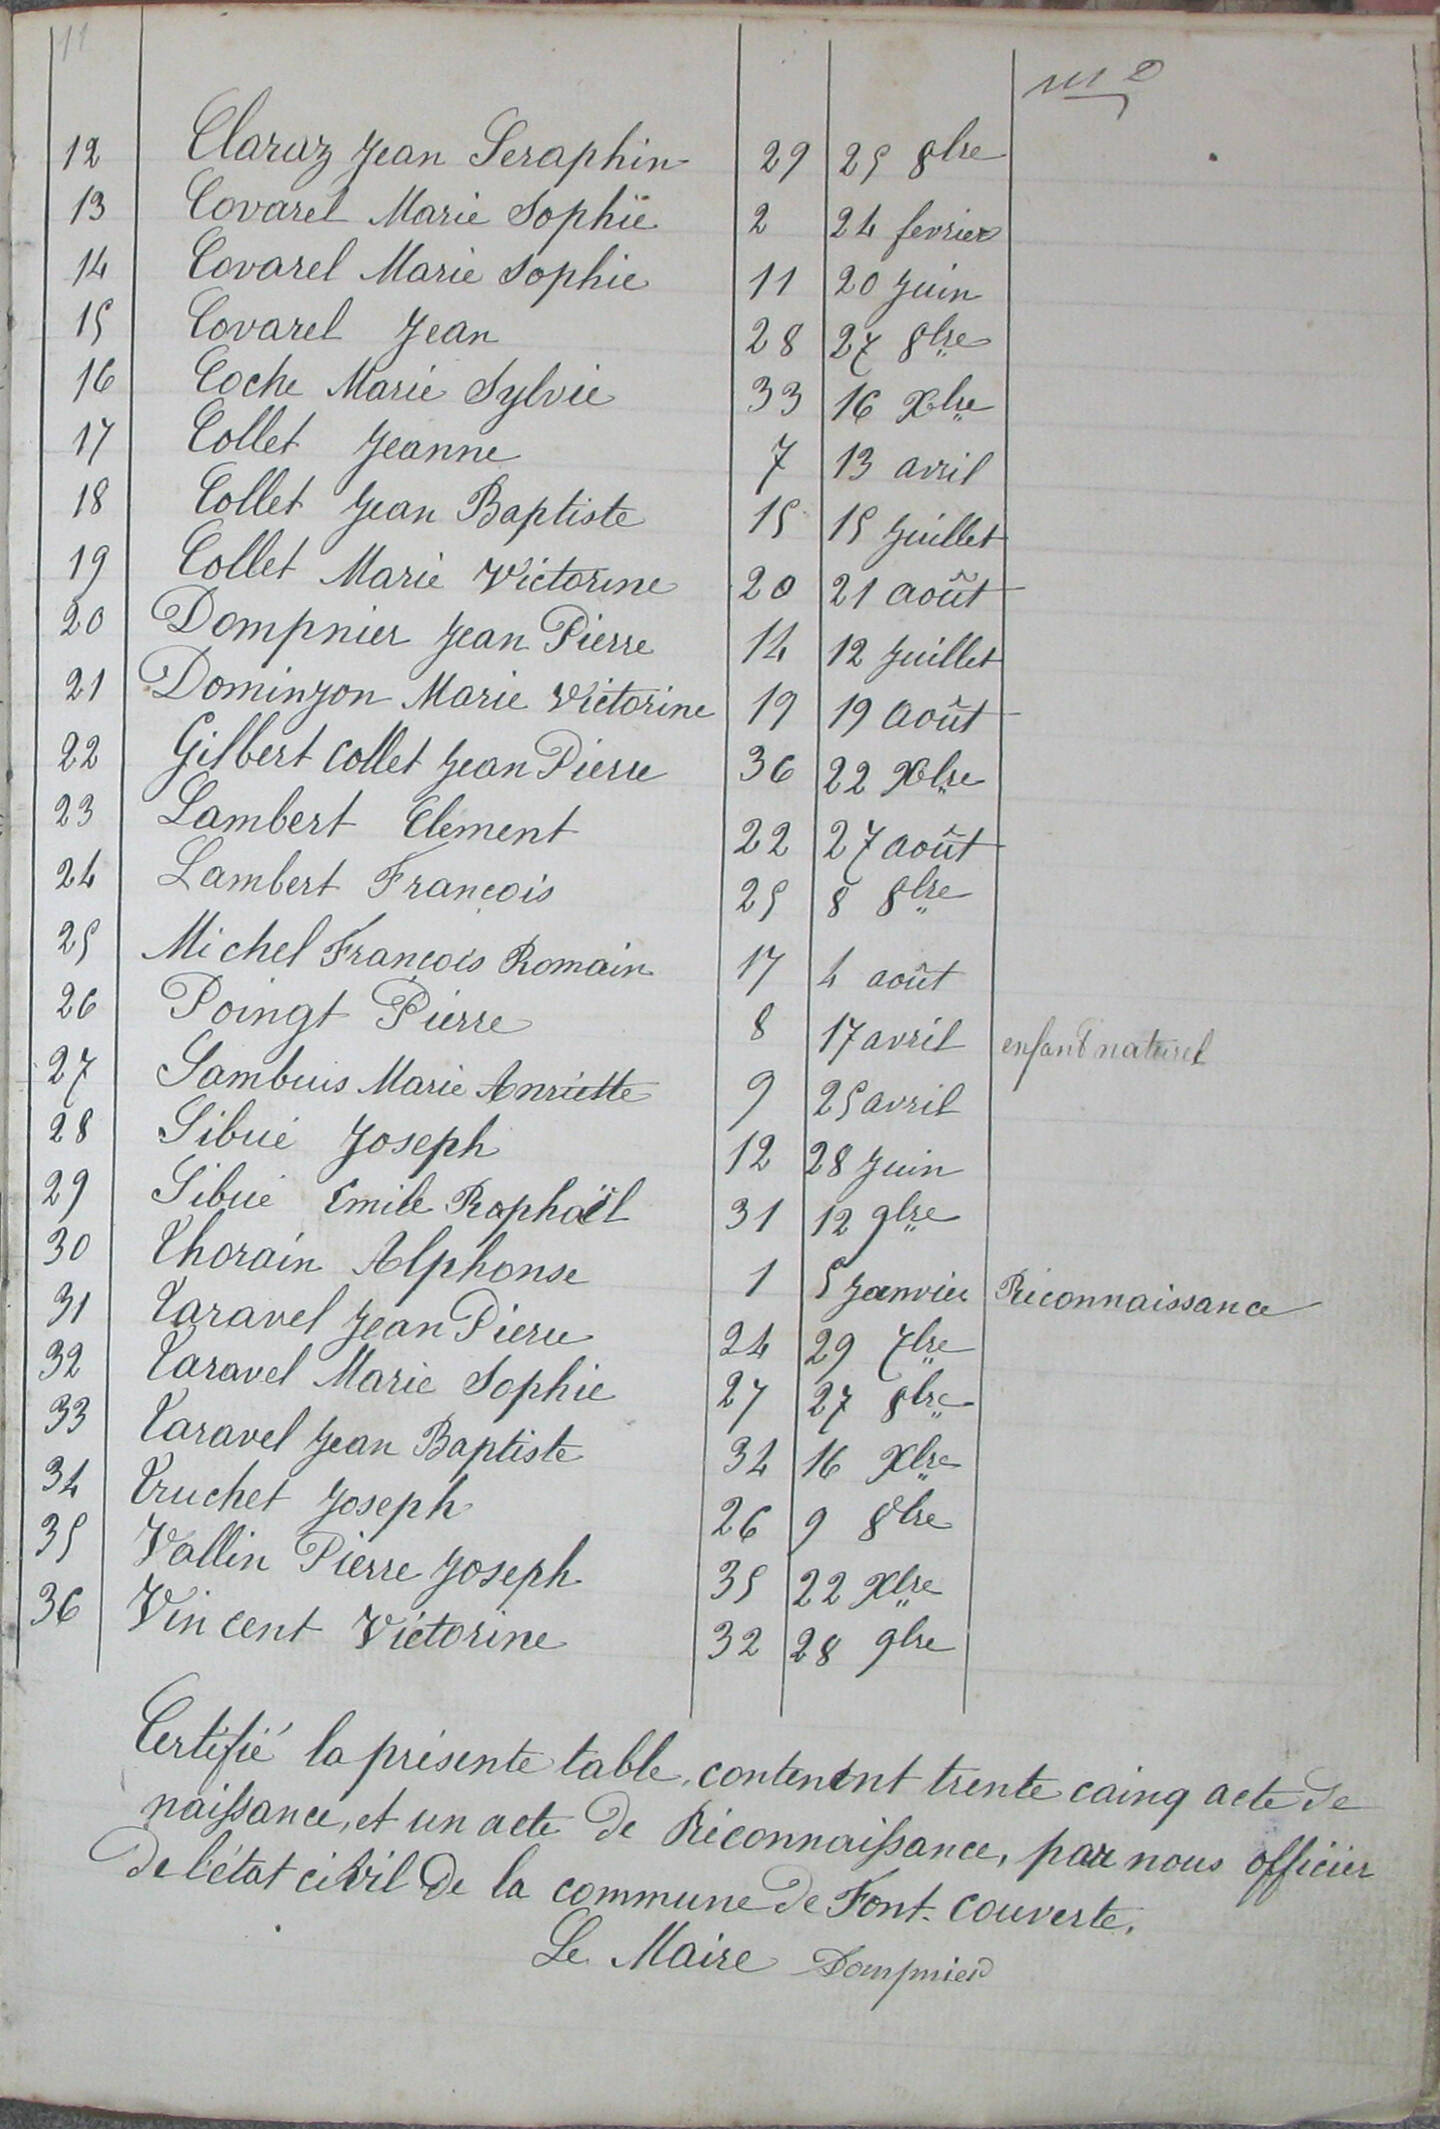 11
12 Claraz Jean Seraphin 29 25 8bre
13 Covarel Marie Sophie 2 24 fevrier
14 Covarel Marie Sophie 11 20 Juin
15 Covarel Jean 28 27 8bre
16 Coche Marie Sylvie 33 16 Xbre
17 Collet Jeanne 7 13 avril
18 Collet Jean Baptiste 15 15 Juillet
19 Collet Marie Victorine 20 21 août
20 Dompnier Jean Pierre 14 12 Juillet
21 Dominjon Marie Victorine 19 19 août
22 Gilbert Collet Jean Pierre 36 22 Xbre
23 Lambert Clement 22 27 août
24 Lambert François 25 8 8bre
25 Michel François Romain 17 4 août
26 Poingt Pierre 8 17 avril enfant naturel
27 Sambuis Marie Anriette 9 25 avril
28 Sibué Joseph 12 28 Juin
29 Sibué Emile Raphaël 31 12 9bre
30 Thorain Alphonse 1 5 Janvier Réconnaissance
31 Taravel Jean Pierre 24 29 7bre
32 Taravel Marie Sophie 27 27 8bre
33 Taravel Jean Baptiste 34 16 Xbre
34 Truchet Joseph 26 9 8bre
35 Vallin Pierre Joseph 35 22 Xbre
36 Vincent Victorine 32 28 9bre
Certifié la présente table, contenent trente cainq acte de
naissance, et un acte de Réconnaissance, par nous officier
de l'état civil de la commune de Font-couverte.
Le Maire Dompnier